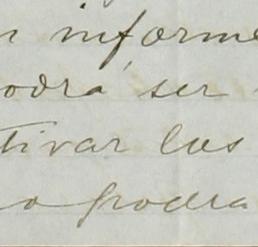 n informe
odrá ser
tivar los
o podra